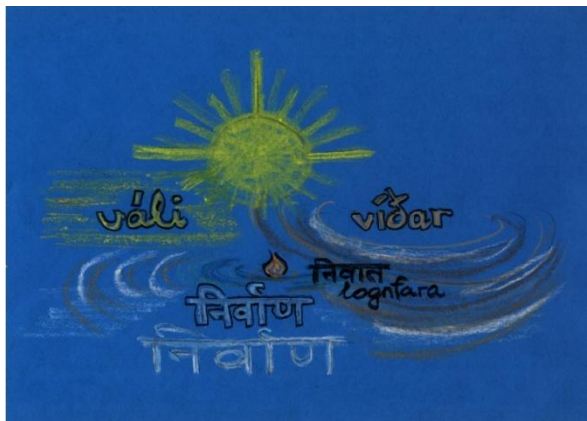 váli
víðar
निवात
lognfara
निर्वाण
निर्वाण